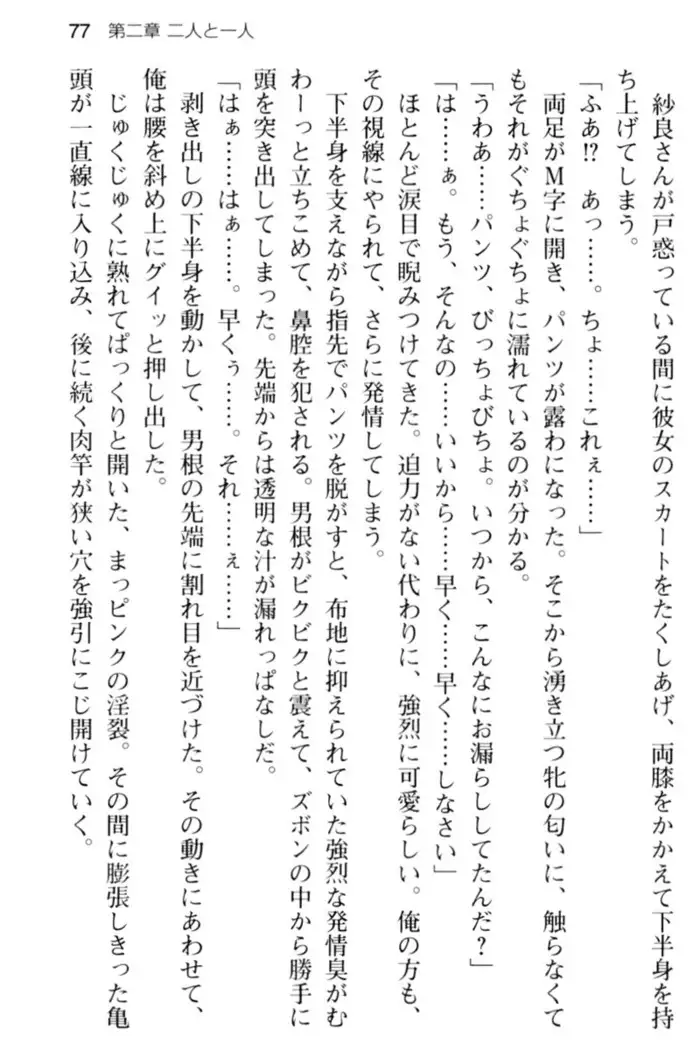 77 第二章 二人と一人
紗良さんが戸惑っている間に彼女のスカートをたくしあげ、両膝をかかえて下半身を持
ち上げてしまう。
「ふあ!? あっ……。ちょ……これぇ……」
両足がM字に開き、パンツが露わになった。そこから湧き立つ牝の匂いに、触らなくて
もそれがぐちょぐちょに濡れているのが分かる。
「うわあ……パンツ、びっちょびちょ。いつから、こんなにお漏らししてたんだ?」
「は……ぁ。もう、そんなの……いいから……早く……早く……しなさい」
ほとんど涙目で睨みつけてきた。迫力がない代わりに、強烈に可愛らしい。俺の方も、
その視線にやられて、さらに発情してしまう。
下半身を支えながら指先でパンツを脱がすと、布地に抑えられていた強烈な発情臭がむ
わーっと立ちこめて、鼻腔を犯される。男根がビクビクと震えて、ズボンの中から勝手に
頭を突き出してしまった。先端からは透明な汁が漏れっぱなしだ。
「はぁ……はぁ……。早くぅ……。それ……ぇ……」
剥き出しの下半身を動かして、男根の先端に割れ目を近づけた。その動きにあわせて、
俺は腰を斜め上にグイッと押し出した。
じゅくじゅくに熟れてぱっくりと開いた、まっピンクの淫裂。その間に膨張しきった亀
頭が一直線に入り込み、後に続く肉竿が狭い穴を強引にこじ開けていく。